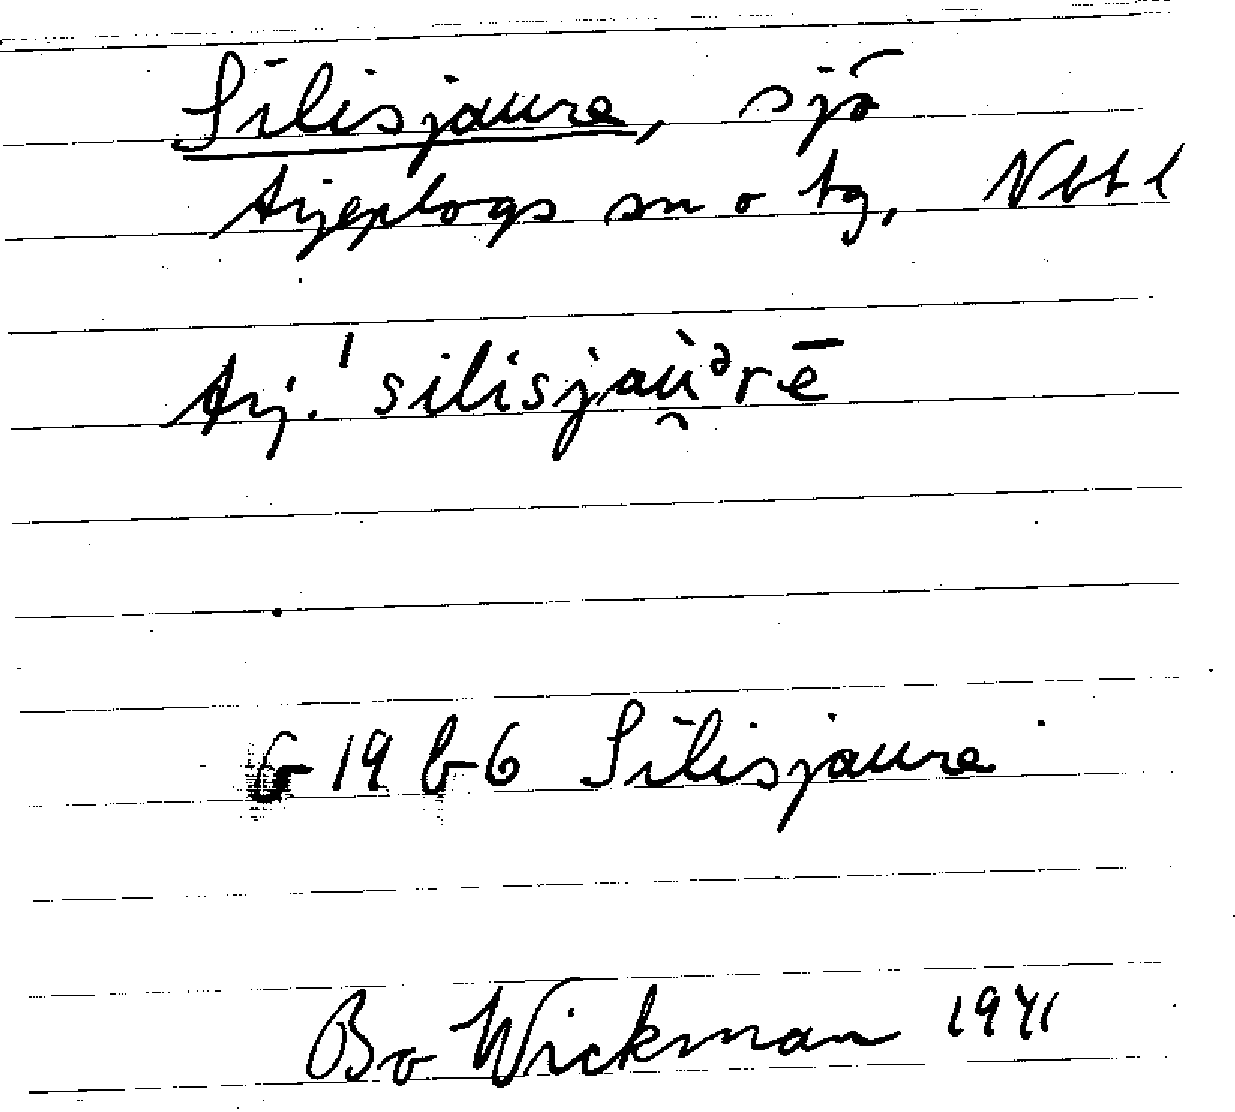 Silisjaure, sjö
Arjeplogs sn o tg, Nbtl
Arj. ˈsilisjaù̯ᵊrē
G 19 b-6 Silisjaure
Bo Wickman 1941